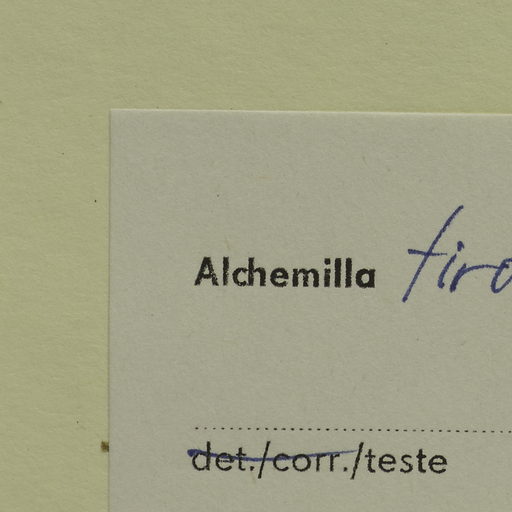 Alchemilla
det./corr./teste